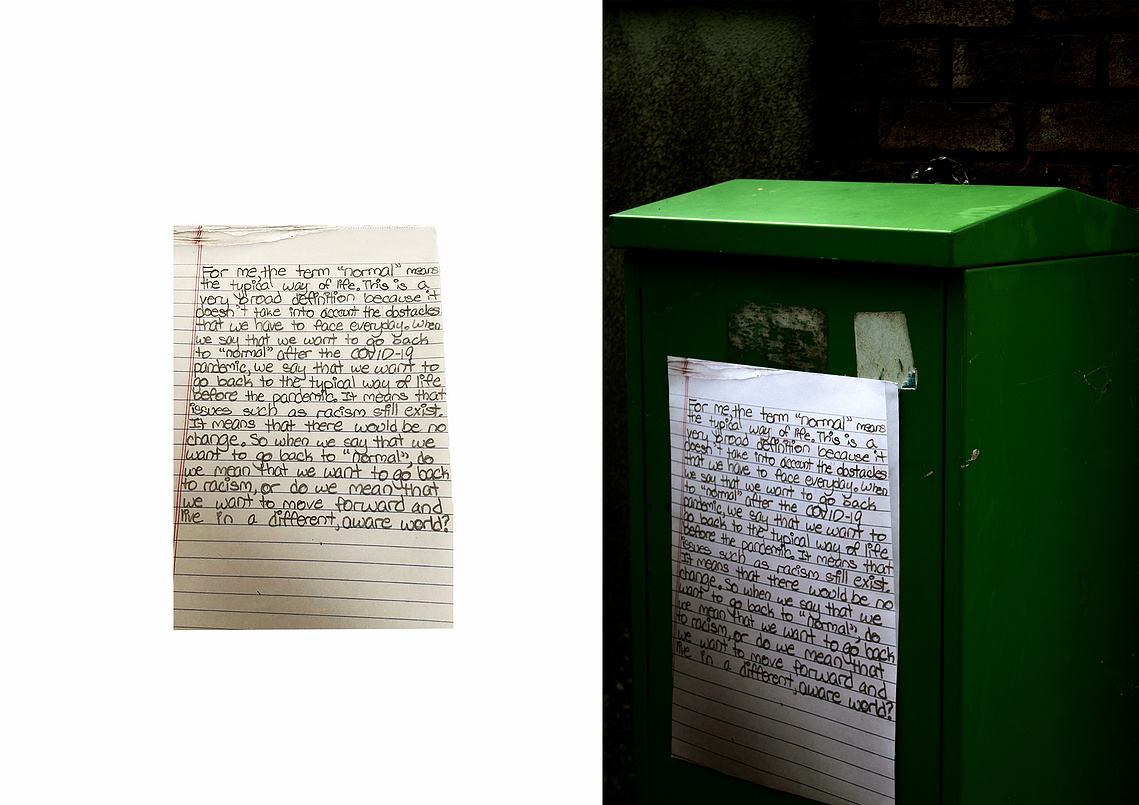 For me, the term "normal" means
the typical way of life. This is a
very broad definition because it
doesn't take into account the obstacles
that we have to face everyday. When
we say that we want to go back
to "normal" after the COVID-19
pandemic, we say that we want to
go back to the typical way of life
before the pandemic. It means that
issues such as racism still exist.
It means that there would be no
change. So when we say that we
want to go back to "normal", do
we mean that we want to go back
to racism, or do we mean that
we want to move forward and
live in a different, aware world?
For me, the term "normal" means
the typical way of life. This is a
very broad definition because it
doesn't take into account the obstacles
that we have to face everyday. When
we say that we want to go back
to "normal" after the COVID-19
pandemic, we say that we want to
go back to the typical way of life
before the pandemic. It means that
issues such as racism still exist.
It means that there would be no
change. So when we say that we
want to go back to "normal", do
we mean that we want to go back
to racism, or do we mean that
we want to move forward and
live in a different, aware world?